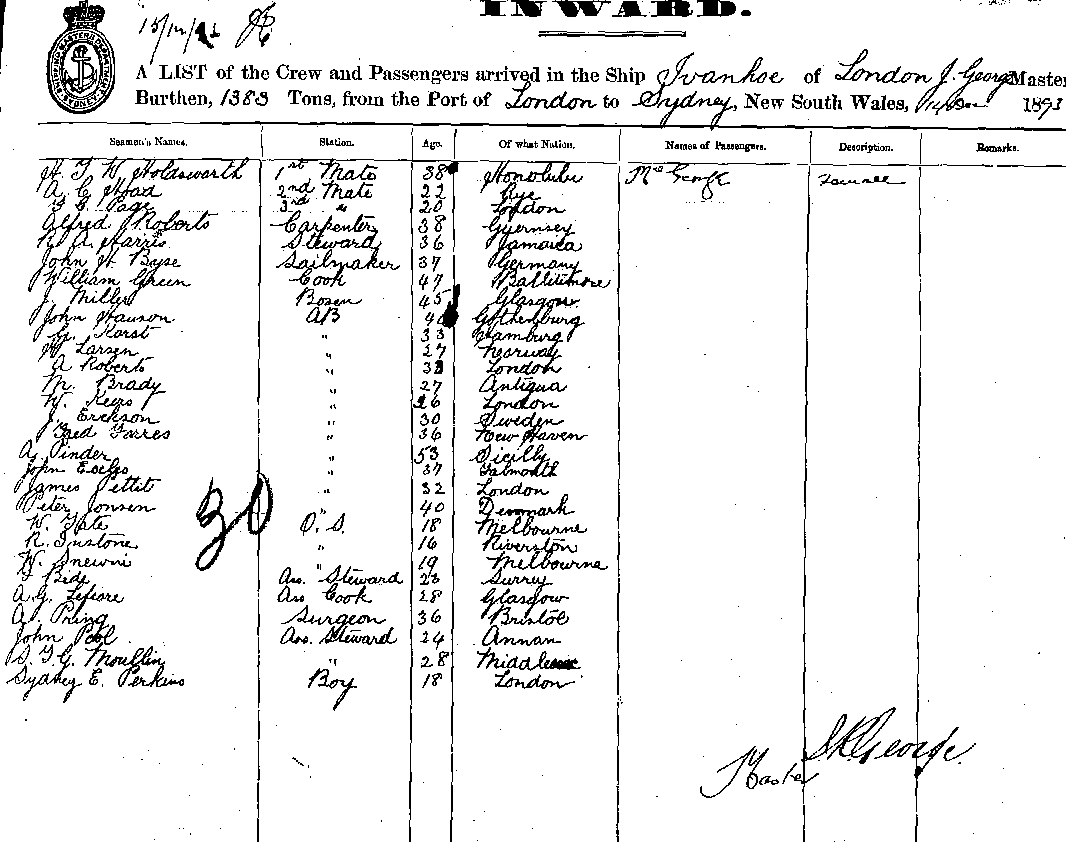 INWARD.
15/12/91
A LIST of the Crew and Passengers arrived in the Ship Ivanhoe of London J. George Master
Burthen, 1383 Tons, from the Port of London to Sydney, New South Wales, 14 Dec 1891
Seamen's Names. Station. Age. Of what Nation. Names of Passengers. Description. Remarks.
H. T. W. Holdsworth 1st Mate 38 Honolulu Mrs George
A C Hoad 2nd Mate 22 Rye
Page 3rd " 20 London
Alfred J Roberts Carpenter 38 Guernsey
R. A Harris Steward 36 Jamaica
John H. Byse Sailmaker 37 Germany
William Green Cook 47 Balltimore
J. Miller Bosen 45 Glasgow
John Hanson AB 40 Gothenburg
G. Karst " 33 Hamburg
H Larsen " 27 Norway
A Roberts " London
M. Brady " 27 Antigua
W. Keys " 26 London
J. Erickson " 30 Sweden
Fred Farres " 36 New Haven
A. Pinder " 53 Sicilly
John Eccles " 37 Falmouth
James Pettit " 32 London
Peter Jonsen " 40 Denmark
30
W. Tate O. S. 18 Melbourne
R. Tustone " 16 Riverston
W. " 19 Melbourne
Bide Ass. Steward 23 Surrey
A.G. Ass Cook 28 Glasgow
A. Pring Surgeon 36 Bristol
John Pool Ass. Steward 24 Annan
S. T. G. Moullin " 28 Middlesex
Sydney E. Perkins Boy 18 London
George
Master